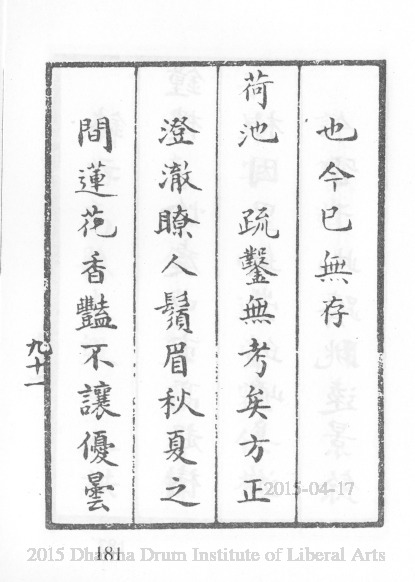 也今已無存
荷池 疏鑿無考矣方正
澄澈瞭人鬚眉秋夏之
間蓮花香豔不讓優曇
九十一
2015-04-17
181
2015 Dharma Drum Institute of Liberal Arts